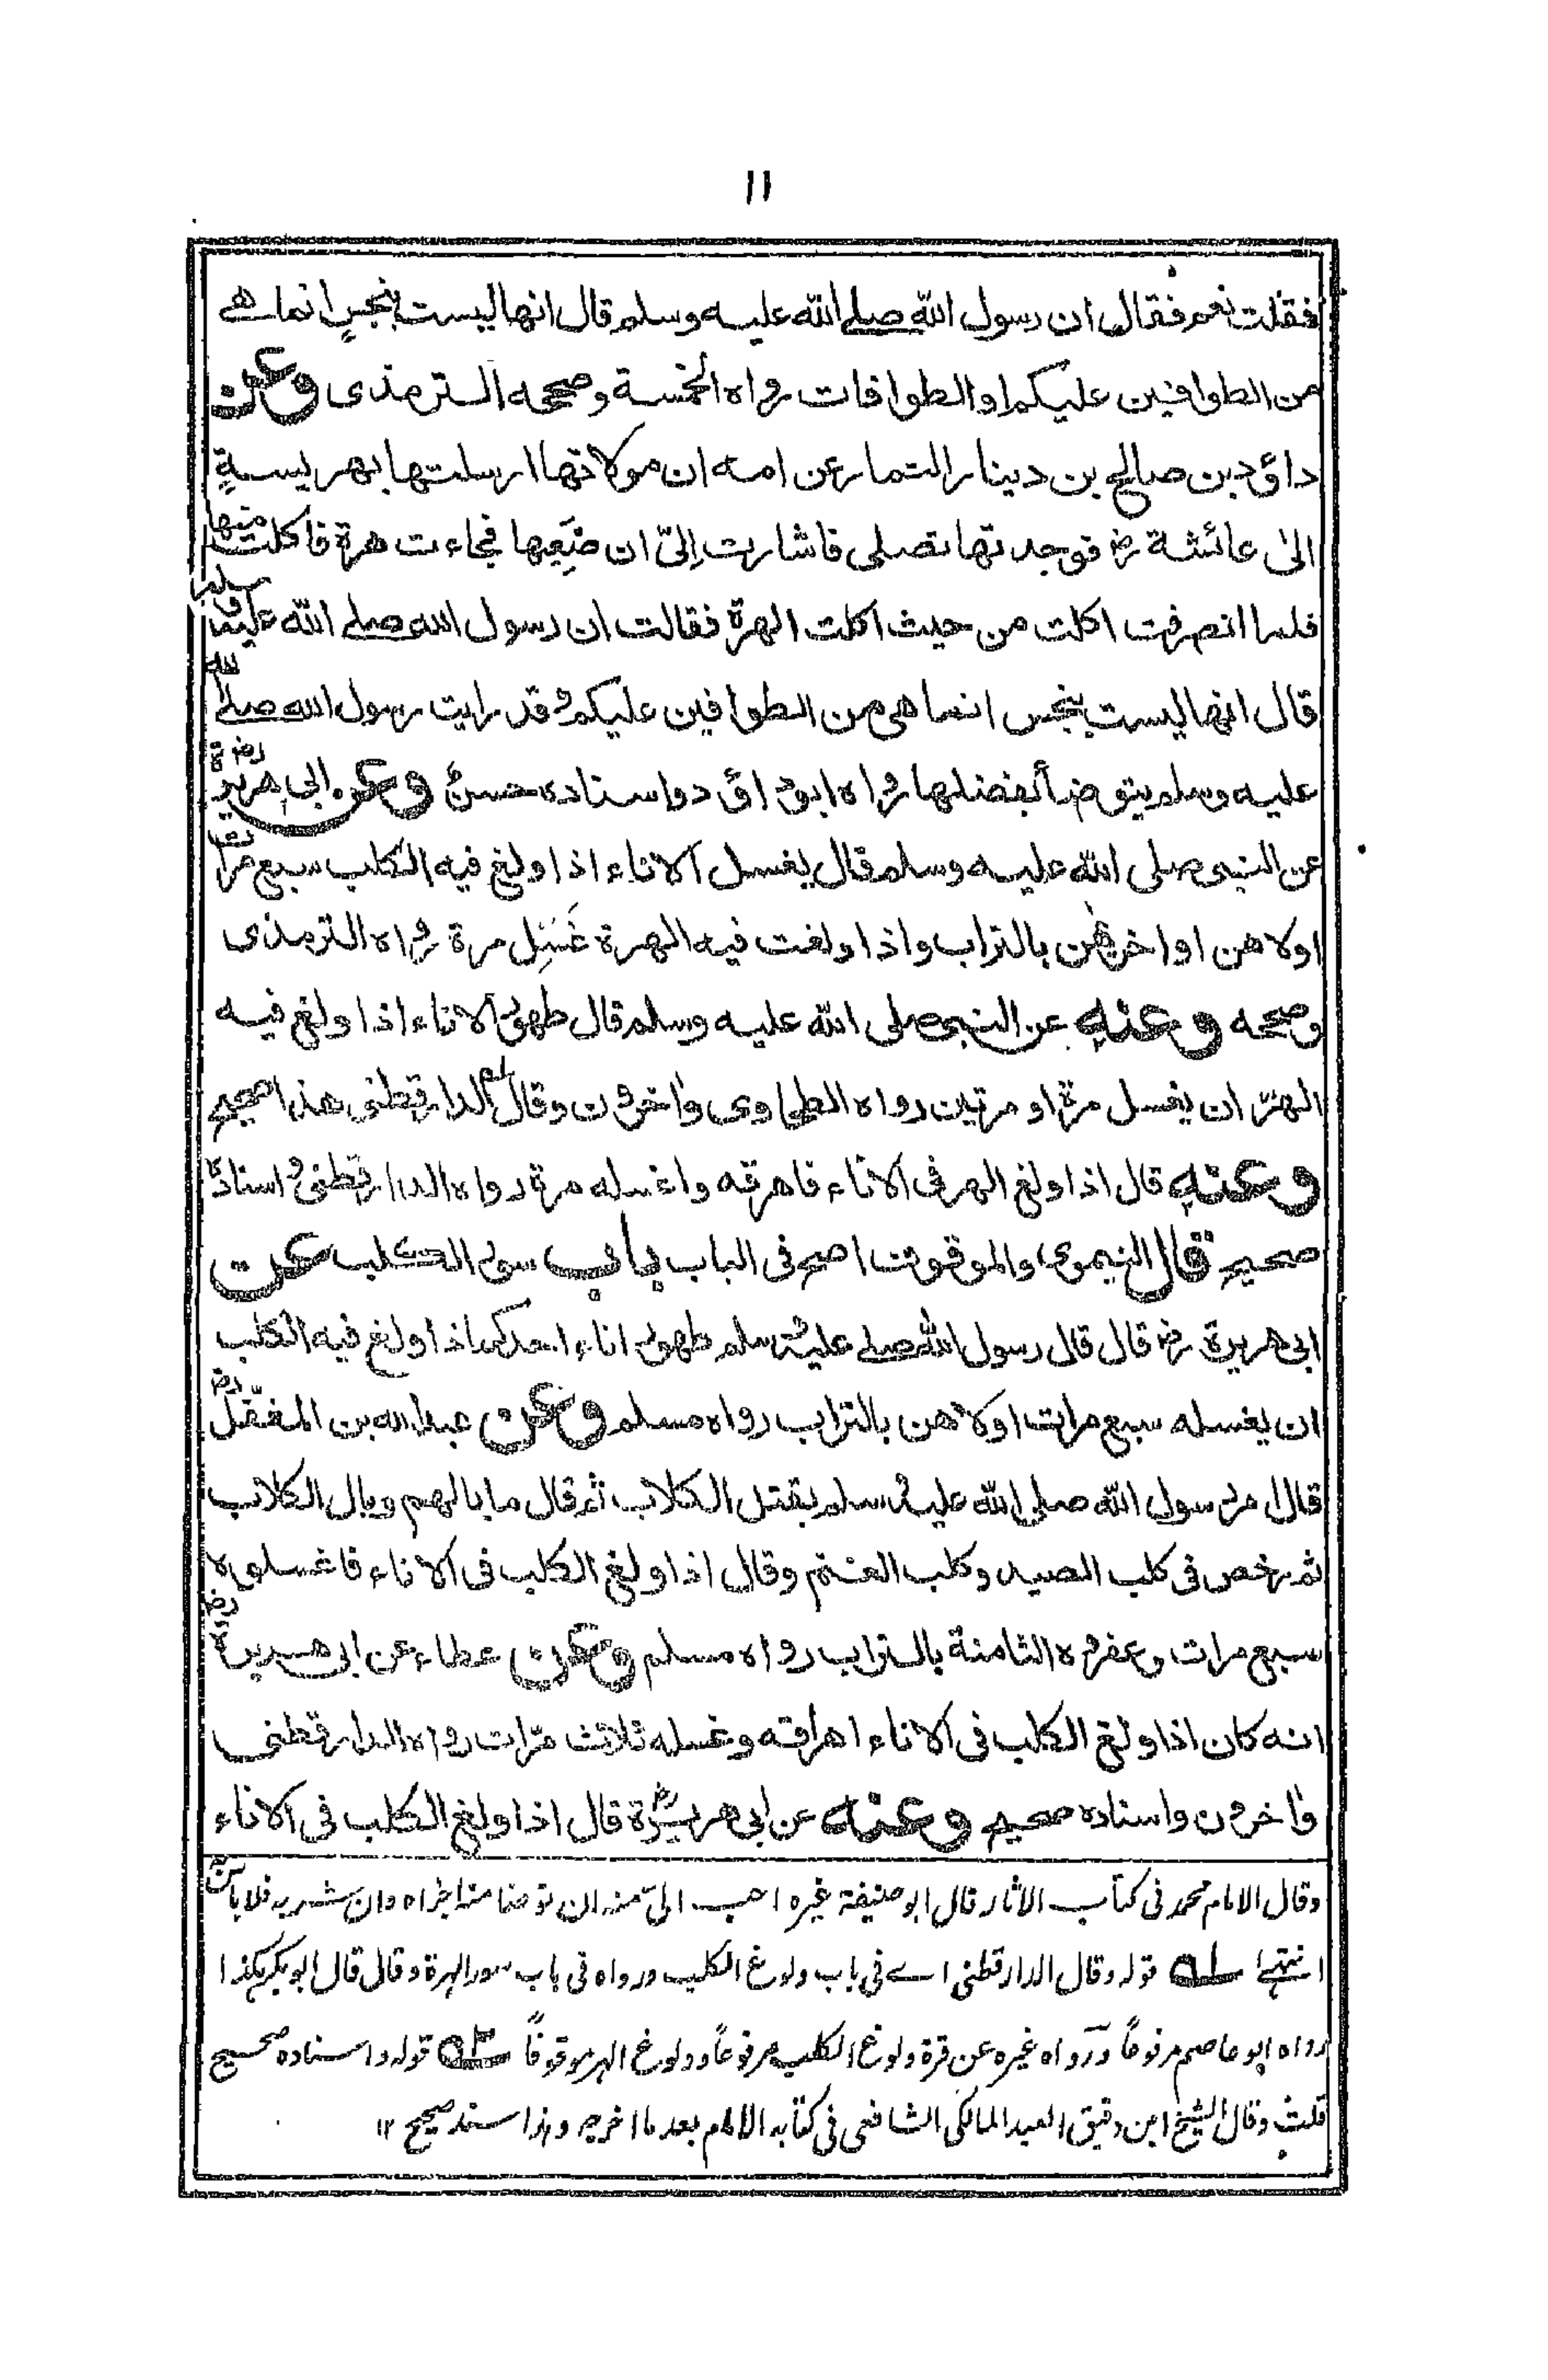 ١١
فقلت نعم فقال ان رسول الله صلے الله عليه وسلم قال انها ليست بنجسٍ انما هے
من الطوافين عليكم او الطوافات رواه الخمسة وصححه الترمذى وعن
داؤد بن صالح بن دينار التمار عن امه ان مولاتها ارسلتها بهريسةٍ
الىٰ عائشة رض فوجدتها تصلى فاشارت اِلىّ ان ضَعِيها فجاءت هرة فاكلت منها
فلما انصرفت اكلت من حيث اكلت الهرة فقالت ان رسول الله صلے الله عليه وسلم
قال انها ليست بنجس انما هى من الطوافين عليكم وقد رايت رسول الله صلے الله
عليه وسلم يتوضأ بفضلها رواه ابوداؤد واسناده حسن وعن ابى هريرة رض
عن النبى صلى الله عليه وسلم قال يغسل الاناء اذا ولغ فيه الكلب سبع مرات
اولاهن او اخرهن بالتراب واذا ولغت فيه الهرة غُسِل مرة رواه الترمذى
وصححه وعنه عن النبى صلى الله عليه وسلم قال طهور الاناء اذا ولغ فيه
الهرّ ان يغسل مرة او مرتين رواه الطحاوى واٰخرون وقال الدارقطنى هذا صحيح
وعنه قال اذا ولغ الهر فى الاناء فاهرقه واغسله مرة رواه الدارقطنى واسناده
صحيح قال النيموى والموقوف اصح فى الباب باب سور الكلب عن
ابى هريرة رض قال قال رسول الله صلے عليه وسلم طهور اناء احدكم اذا ولغ فيه الكلب
ان يغسله سبع مرات اولاهن بالتراب رواه مسلم وعن عبد الله بن المغفل رض
قال امر رسول الله صلى الله عليه وسلم بقتل الكلاب ثم قال ما بالهم وبال الكلاب
ثم رخص فى كلب الصيد وكلب الغنم وقال اذا ولغ الكلب فى الاناء فاغسلوه
سبع مرات وعفروه الثامنة بالتراب رواه مسلم وعن عطاء عن ابى هريرة رض
انه كان اذا ولغ الكلب فى الاناء اهراقه وغسله ثلاث مرّات رواه الدارقطنى
واٰخرون واسناده صحيح وعنه عن ابى هريرة رض قال اذا ولغ الكلب فى الاناء
وقال الامام محمد فى كتاب الاثار قال ابو حنيفة غيره احب الىّ منه ان توضا منه اجزاه وان شربه فلا باس به
انتهےٰ ١ه قوله وقال الدارقطنى اے فى باب ولوغ الكلب ورواه فى باب سور الهرة وقال قال ابو بكر كذا
رواه ابو عاصم مرفوعًا ورواه غيره عن قرة ولوغ الكلب مرفوعًا وولوغ الهر موقوفًا ٢ه قوله واسناده صحيح
قلت وقال الشيخ ابن دقيق العيد المالكى الشافعى فى كتابه الامام بعد ما اخرجه وهذا سند صحيح ١٢